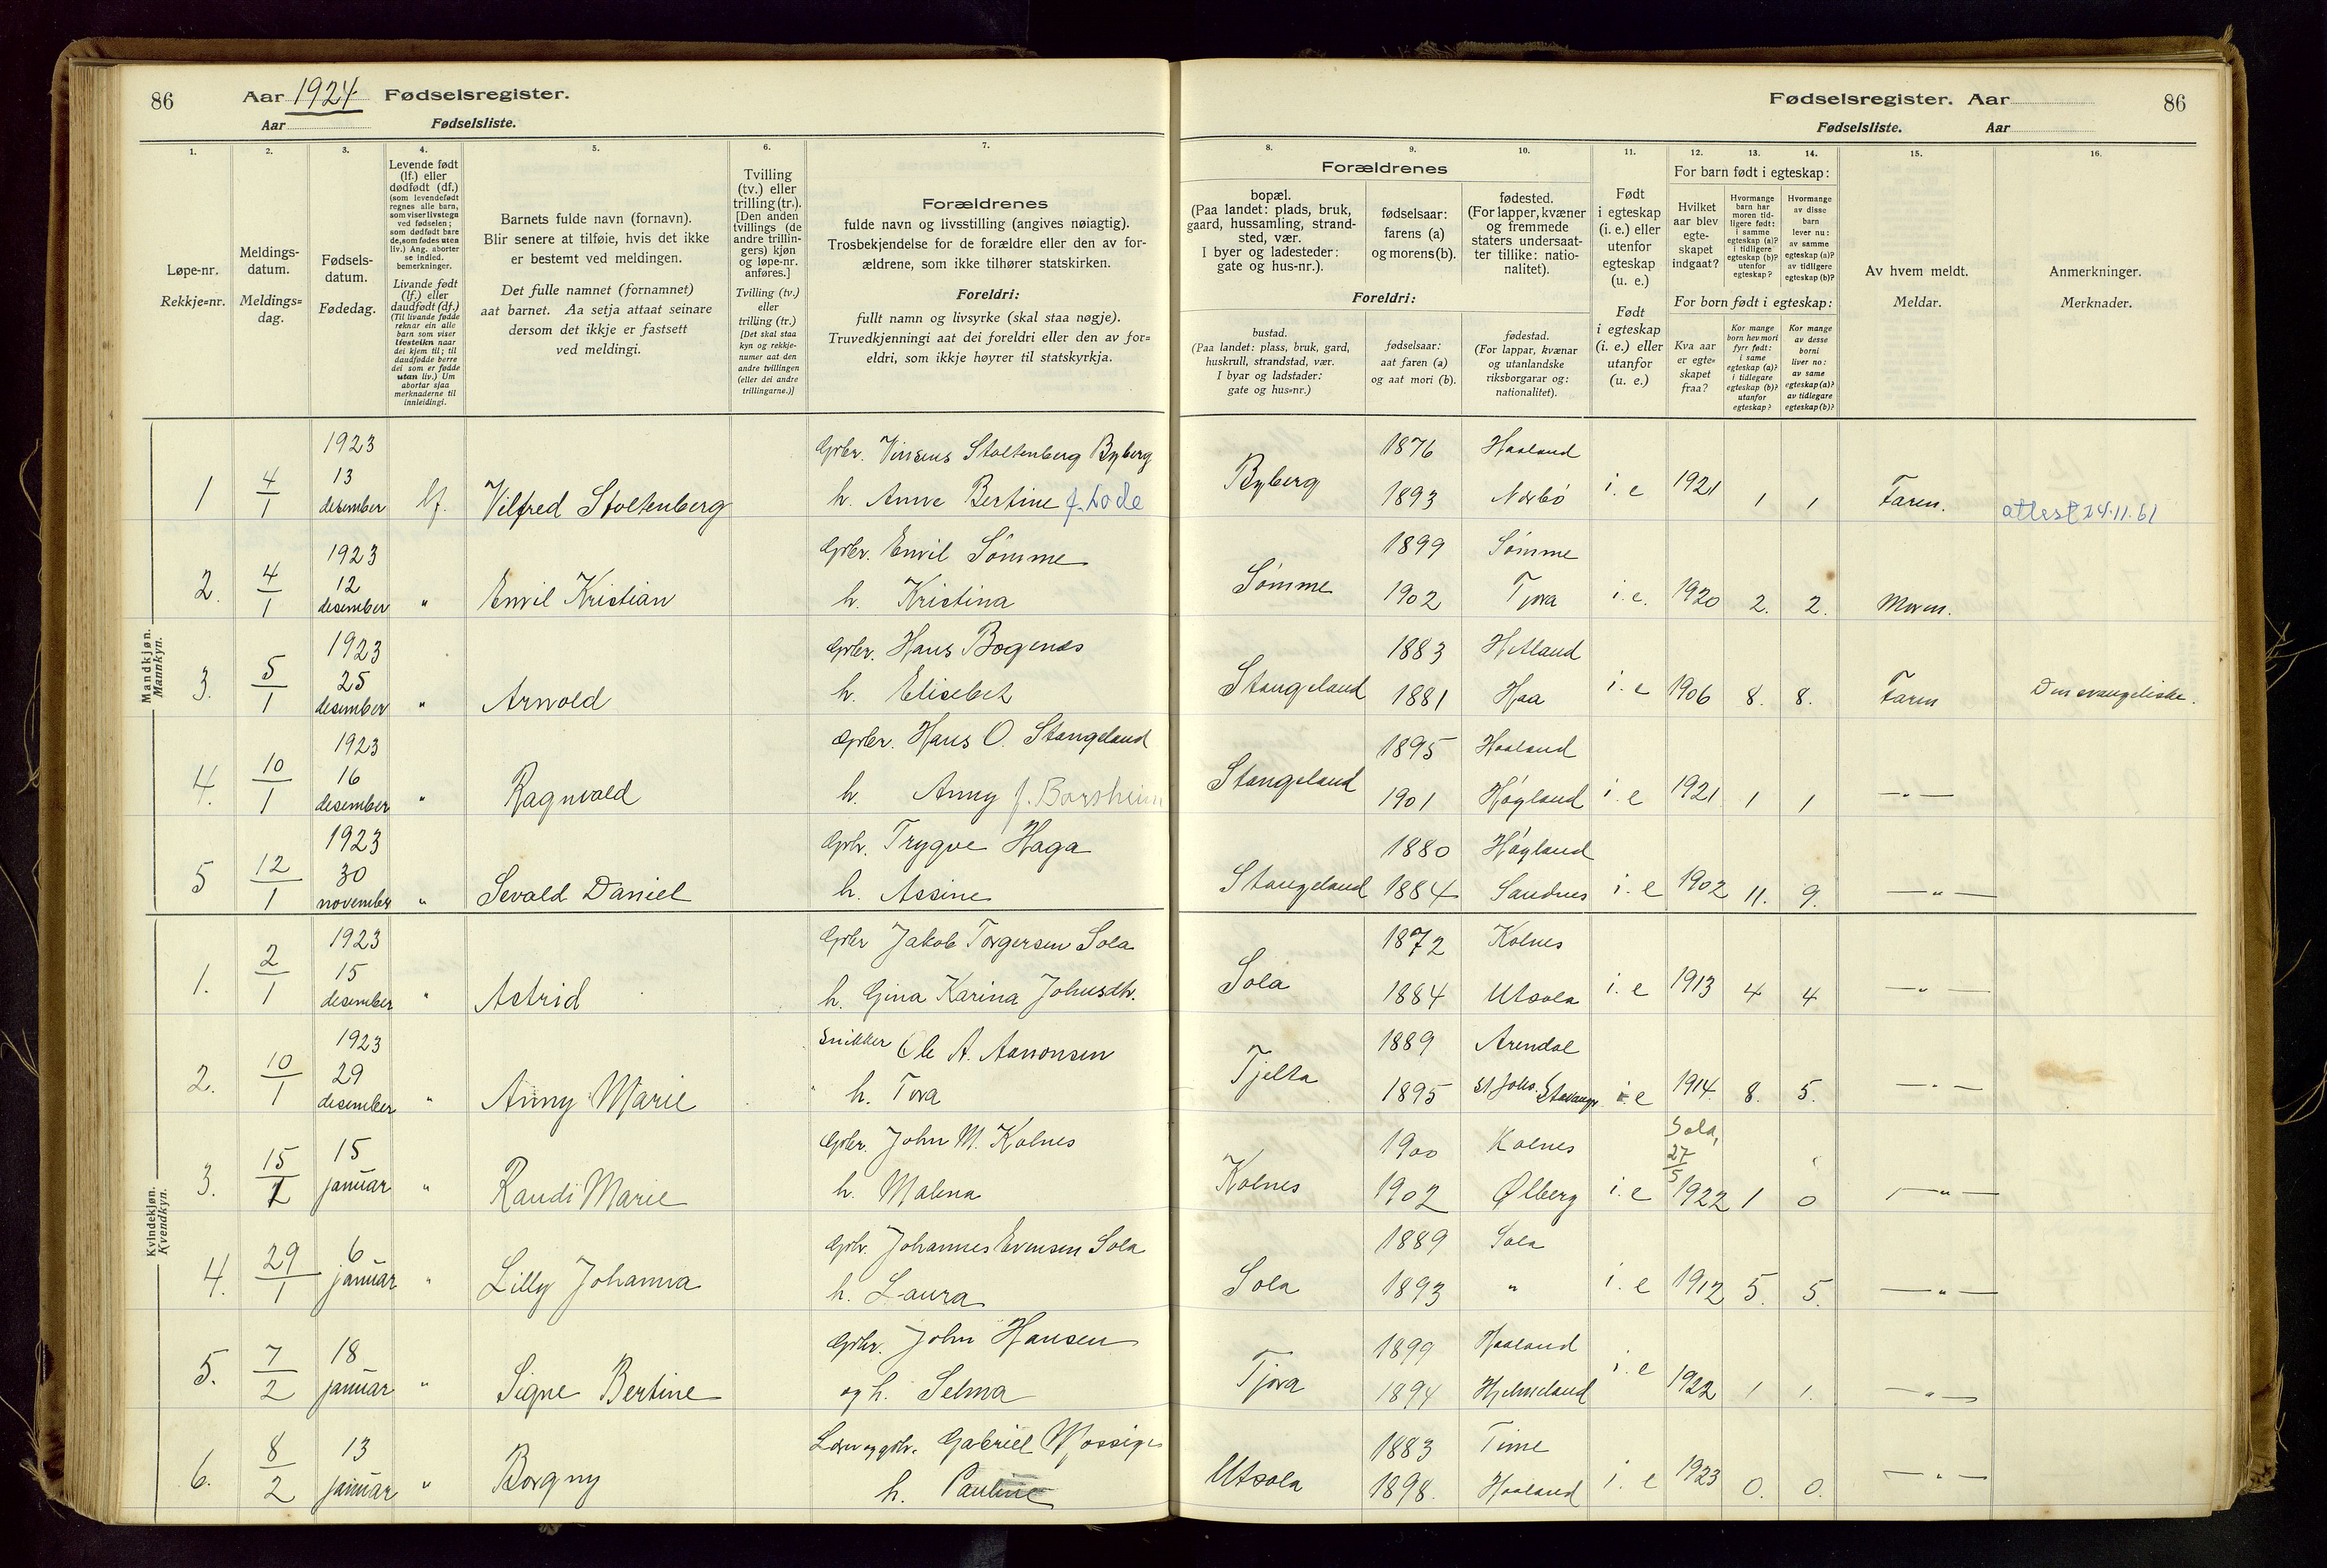 86 Aar 1924. Fødselsregister.
Aar Fødselsliste.
Fødselsregister. Aar 86
Fødselsliste. Aar
1. 2. 3. 4. 5. 6. 7.
Løpe-nr.
Rekkje=nr.
Meldings-
datum.
Meldings=
dag.
Fødsels-
datum.
Fødedag.
Levende født
(lf.) eller
dødfødt (df.)
(som levendefødt
regnes alle barn,
som viser livstegn
ved fødselen;
som dødfødt bare
de, som fødes uten
liv.) Ang. aborter
se indled.
bemerkninger.
Livande født
(lf.) eller
daudfødt (df.)
(Til livande fødde
reknar ein alle
barn som viser
livsteikn naar
dei kjem til; til
daudfødde berre
dei som er fødde
utan liv.) Um
abortar sjaa
merknaderne til
innleidingi.
Barnets fulde navn (fornavn).
Blir senere at tilføie, hvis det ikke
er bestemt ved meldingen.
Det fulle namnet (fornamnet)
aat barnet. Aa setja attaat seinare
dersom det ikkje er fastsett
ved meldingi.
Tvilling
(tv.) eller
trilling (tr.).
[Den anden
tvillings (de
andre trillin-
gers) kjøn
og løpe-nr.
anføres.]
Tvilling (tv.)
eller
trilling (tr.)
[Det skal staa
kyn og rekkje-
numer aat den
andre tvillingen
(eller dei andre
trillingarne.)]
Forældrenes
fulde navn og livsstilling (angives nøiagtig).
Trosbekjendelse for de forældre eller den av for-
ældrene, som ikke tilhører statskirken.
Foreldri:
fullt namn og livsyrke (skal staa nøgje).
Truvedkjenningi aat dei foreldri eller den av for=
eldri, som ikkje høyrer til statskyrkja.
8. 9. 10. 11. 12. 13. 14. 15. 16.
Forældrenes
bopæl.
(Paa landet: plads, bruk,
gaard, hussamling, strand-
sted, vær.
I byer og ladesteder:
gate og hus-nr.).
fødselsaar:
farens (a)
og morens (b).
fødested.
(For lapper, kvæner
og fremmede
staters undersaat-
ter tillike: natio-
nalitet).
Foreldri:
bustad.
(Paa landet: plass, bruk, gard,
huskrull, strandstad, vær.
I byar og ladstader:
gate og hus=nr.)
fødselsaar:
aat faren (a)
og aat mori (b).
fødestad.
(For lappar, kvænar
og utanlandske
riksborgarar og:
nationalitet).
Født
i egteskap
(i. e.) eller
utenfor
egteskap
(u. e.)
Født
i egteskap
(i. e.) eller
utanfor
(u. e.)
For barn født i egteskap:
Hvilket
aar blev
egte-
skapet
indgaat?
Hvormange
barn har
moren tid-
ligere født:
i samme
egteskap (a)?
i tidligere
egteskap (b)?
utenfor
egteskap?
Hvormange
av disse
barn
lever nu:
av samme
egteskap (a)?
av tidligere
egteskap (b)?
For born født i egteskap:
Kva aar
er egte=
skapet
fraa?
Kor mange
born hev mori
fyrr født:
i same
egteskap (a)?
i tidlegare
egteskap (b)?
utanfor
egteskap?
Kor mange
av desse
borni
liver no:
av same
egteskap (a)?
av tidlegare
egteskap (b)?
Av hvem meldt.
Meldar.
Anmerkninger.
Merknader.
Mandkjøn.
Mannkyn.
1 4/1 1923 13 desember lf. Vilfred Stoltenberg Gbr. Vinsens Stoltenberg Byberg
h. Anne Bertine f. Lode
Byberg 1876 Haaland
1893 Nærbø i. e 1921 1 1 Faren. attest 24.11.61
2. 4/1 1923 12 desember " Emil Kristian Gbr. Emil Sömme
h. Kristina
Sömme 1899 Sömme
1902 Tjora i. e. 1920 2. 2. Moren.
3. 5/1 1923 25 desember " Arnold Gbr. Hans Bogenes
h. Elisebet
Stangeland 1883 Hetland
1881 Haa i. e 1906 8. 8. Faren Den evangeliske.
4. 10/1 1923 16 desember " Ragnvald Gbr. Hans O. Stangeland
h. Anny f. Borsheim
Stangeland 1895 Haaland
1901 Höyland i. e 1921 1 1 — " —
5 12/1 1923 30 november " Sevald Daniel Gbr. Trygve Haga
h. Assine
Stangeland 1880 Höyland
1884 Sandnes i. e 1902 11. 9. — " —
Kvindekjøn.
Kvendkyn.
1. 2/1 1923 15 desember " Astrid Gbr Jakob Torgersen Sola
h. Gina Karina Johnsdtr.
Sola 1872 Kolnes
1884 Utsola i. e 1913 4 4 — " —
2. 10/1 1923 29 desember " Anny Marie Snikker Ole A. Aanonsen
h. Tora
Tjelta 1889 Arendal
1895 St Johs. Stavanger i. e 1914. 8. 5. — " —
3. 15/1 15 januar " Randi Marie Gbr. John M. Kolnes
h. Malena
Kolnes 1900 Kolnes
1902 Ølberg i. e Sola, 27/5 1922 1 0 — " —
4. 29/1 6 januar " Lilly Johanna Gbr. Johannes Evensen Sola
h. Laura
Sola 1889 Sola
1893 " i. e 1912 5. 5. — " —
5. 7/2 18 januar " Signe Bertine Gbr. John Hansen
og h. Selma
Tjora 1899 Haaland
1894 Hjelmeland i. e 1922 1 1. — " —
6. 8/2 13 januar " Borgny Lærer og gbr. Gabriel Mossige
h. Pauline
Utsola 1883 Time
1898. Haaland i. e 1923 0. 0. — " —